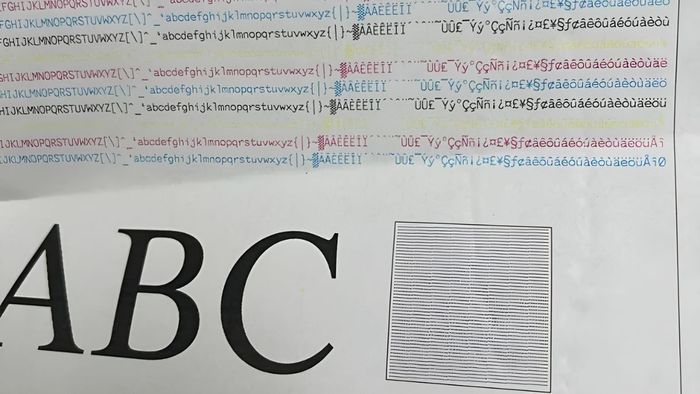 FGHIJKLMNOPQRSTUVWXYZ[\]^_'abcdefghijklmnopqrstuvwxyz{|}~▒ÀÂÈÊËÎÏ´`ˆ¨˜ÙÛ£¯Ýý°ÇçÑñ¡¿¤£¥§ƒ¢âêôûáéóúàèòù
FGHIJKLMNOPQRSTUVWXYZ[\]^_'abcdefghijklmnopqrstuvwxyz{|}~▒ÀÂÈÊËÎÏ´`ˆ¨˜ÙÛ£¯Ýý°ÇçÑñ¡¿¤£¥§ƒ¢âêôûáéóúàèòù
GHIJKLMNOPQRSTUVWXYZ[\]^_'abcdefghijklmnopqrstuvwxyz{|}~▒ÀÂÈÊËÎÏ´`ˆ¨˜ÙÛ£¯Ýý°ÇçÑñ¡¿¤£¥§ƒ¢âêôûáéóúàèòùäë
GHIJKLMNOPQRSTUVWXYZ[\]^_'abcdefghijklmnopqrstuvwxyz{|}~▒ÀÂÈÊËÎÏ´`ˆ¨˜ÙÛ£¯Ýý°ÇçÑñ¡¿¤£¥§ƒ¢âêôûáéóúàèòùäëö
HIJKLMNOPQRSTUVWXYZ[\]^_'abcdefghijklmnopqrstuvwxyz{|}~▒ÀÂÈÊËÎÏ´`ˆ¨˜ÙÛ£¯Ýý°ÇçÑñ¡¿¤£¥§ƒ¢âêôûáéóúàèòùäëöü
IJKLMNOPQRSTUVWXYZ[\]^_'abcdefghijklmnopqrstuvwxyz{|}~▒ÀÂÈÊËÎÏ´`ˆ¨˜ÙÛ£¯Ýý°ÇçÑñ¡¿¤£¥§ƒ¢âêôûáéóúàèòùäëöüÅî
IJKLMNOPQRSTUVWXYZ[\]^_'abcdefghijklmnopqrstuvwxyz{|}~▒ÀÂÈÊËÎÏ´`ˆ¨˜ÙÛ£¯Ýý°ÇçÑñ¡¿¤£¥§ƒ¢âêôûáéóúàèòùäëöüÅîØ
ABC